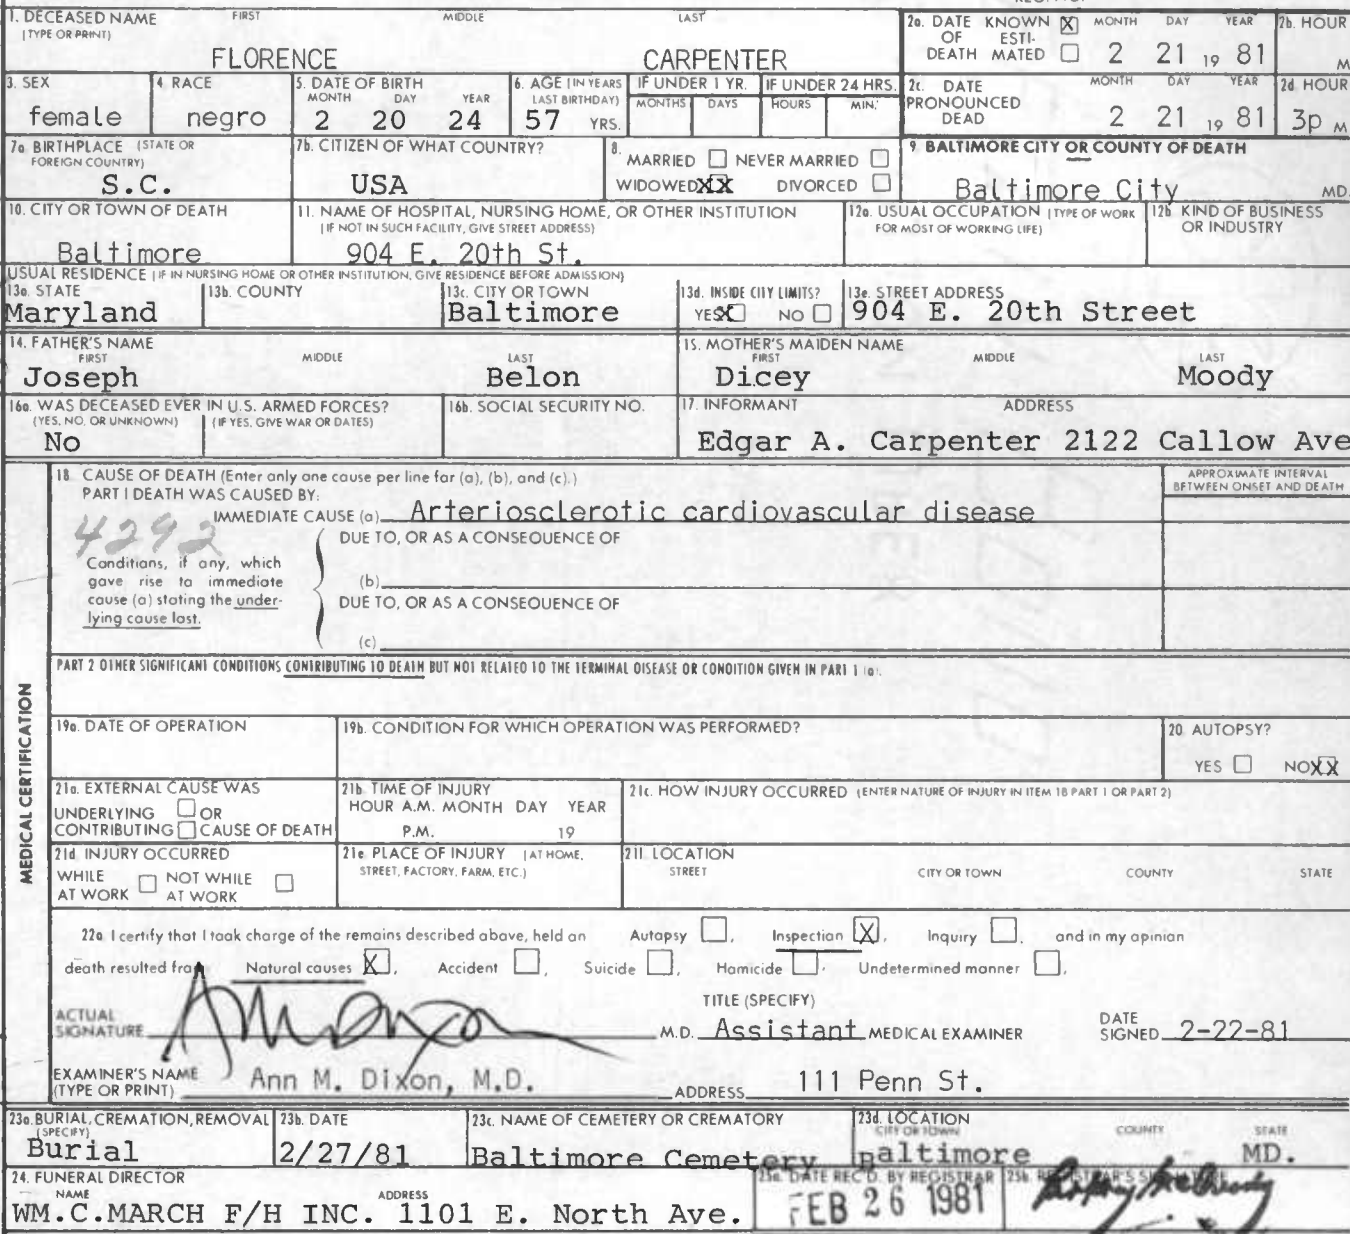 1. DECEASED NAME FIRST MIDDLE LAST
(TYPE OR PRINT)
FLORENCE CARPENTER
2a. DATE OF DEATH KNOWN X ESTIMATED MONTH DAY YEAR
2 21 19 81
2b. HOUR M
3. SEX
female
4. RACE
negro
5. DATE OF BIRTH
MONTH DAY YEAR
2 20 24
6. AGE (IN YEARS LAST BIRTHDAY)
57 YRS.
IF UNDER 1 YR. IF UNDER 24 HRS.
MONTHS DAYS HOURS MIN.
2c. DATE PRONOUNCED DEAD MONTH DAY YEAR
2 21 19 81
2d HOUR
3p M
7a BIRTHPLACE (STATE OR FOREIGN COUNTRY)
S.C.
7b. CITIZEN OF WHAT COUNTRY?
USA
8. MARRIED NEVER MARRIED
WIDOWED XX DIVORCED
9 BALTIMORE CITY OR COUNTY OF DEATH
Baltimore City MD.
10. CITY OR TOWN OF DEATH
Baltimore
11. NAME OF HOSPITAL, NURSING HOME, OR OTHER INSTITUTION
(IF NOT IN SUCH FACILITY, GIVE STREET ADDRESS)
904 E. 20th St.
12a. USUAL OCCUPATION (TYPE OF WORK FOR MOST OF WORKING LIFE)
12b KIND OF BUSINESS OR INDUSTRY
USUAL RESIDENCE (IF IN NURSING HOME OR OTHER INSTITUTION, GIVE RESIDENCE BEFORE ADMISSION)
13a. STATE
Maryland
13b. COUNTY
13c. CITY OR TOWN
Baltimore
13d. INSIDE CITY LIMITS?
YES X NO
13e. STREET ADDRESS
904 E. 20th Street
14. FATHER'S NAME
FIRST MIDDLE LAST
Joseph Belon
15. MOTHER'S MAIDEN NAME
FIRST MIDDLE LAST
Dicey Moody
16a. WAS DECEASED EVER IN U.S. ARMED FORCES?
(YES, NO, OR UNKNOWN) (IF YES, GIVE WAR OR DATES)
No
16b. SOCIAL SECURITY NO.
17. INFORMANT ADDRESS
Edgar A. Carpenter 2122 Callow Ave
MEDICAL CERTIFICATION
18 CAUSE OF DEATH (Enter only one cause per line for (a), (b), and (c).)
APPROXIMATE INTERVAL BETWEEN ONSET AND DEATH
PART I DEATH WAS CAUSED BY:
IMMEDIATE CAUSE (a) Arteriosclerotic cardiovascular disease
4292
DUE TO, OR AS A CONSEQUENCE OF
Conditions, if any, which
gave rise to immediate
cause (a) stating the under-
lying cause last.
(b)
DUE TO, OR AS A CONSEQUENCE OF
(c)
PART 2 OTHER SIGNIFICANT CONDITIONS CONTRIBUTING TO DEATH BUT NOT RELATED TO THE TERMINAL DISEASE OR CONDITION GIVEN IN PART 1 (a).
19a. DATE OF OPERATION
19b. CONDITION FOR WHICH OPERATION WAS PERFORMED?
20 AUTOPSY?
YES NO XX
21a. EXTERNAL CAUSE WAS
UNDERLYING OR
CONTRIBUTING CAUSE OF DEATH
21b. TIME OF INJURY
HOUR A.M. MONTH DAY YEAR
P.M. 19
21c. HOW INJURY OCCURRED (ENTER NATURE OF INJURY IN ITEM 18 PART 1 OR PART 2)
21d INJURY OCCURRED
WHILE AT WORK NOT WHILE AT WORK
21e PLACE OF INJURY (AT HOME, STREET, FACTORY, FARM, ETC.)
21f. LOCATION
STREET CITY OR TOWN COUNTY STATE
22a. I certify that I took charge of the remains described above, held an Autopsy , Inspection X, Inquiry , and in my opinion
death resulted from Natural causes X, Accident , Suicide , Homicide , Undetermined manner ,
ACTUAL SIGNATURE
A M Dixon
M.D. TITLE (SPECIFY) Assistant MEDICAL EXAMINER
DATE SIGNED 2-22-81
EXAMINER'S NAME (TYPE OR PRINT) Ann M. Dixon, M.D.
ADDRESS 111 Penn St.
23a. BURIAL, CREMATION, REMOVAL (SPECIFY)
Burial
23b. DATE
2/27/81
23c. NAME OF CEMETERY OR CREMATORY
Baltimore Cemetery
23d. LOCATION
CITY OR TOWN COUNTY STATE
Baltimore MD.
24. FUNERAL DIRECTOR
NAME ADDRESS
WM.C.MARCH F/H INC. 1101 E. North Ave.
25a. DATE REC'D. BY REGISTRAR
FEB 26 1981
25b. REGISTRAR'S SIGNATURE